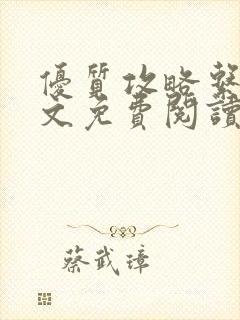 優質攻略繫
文免費閱讀
蔡武璋